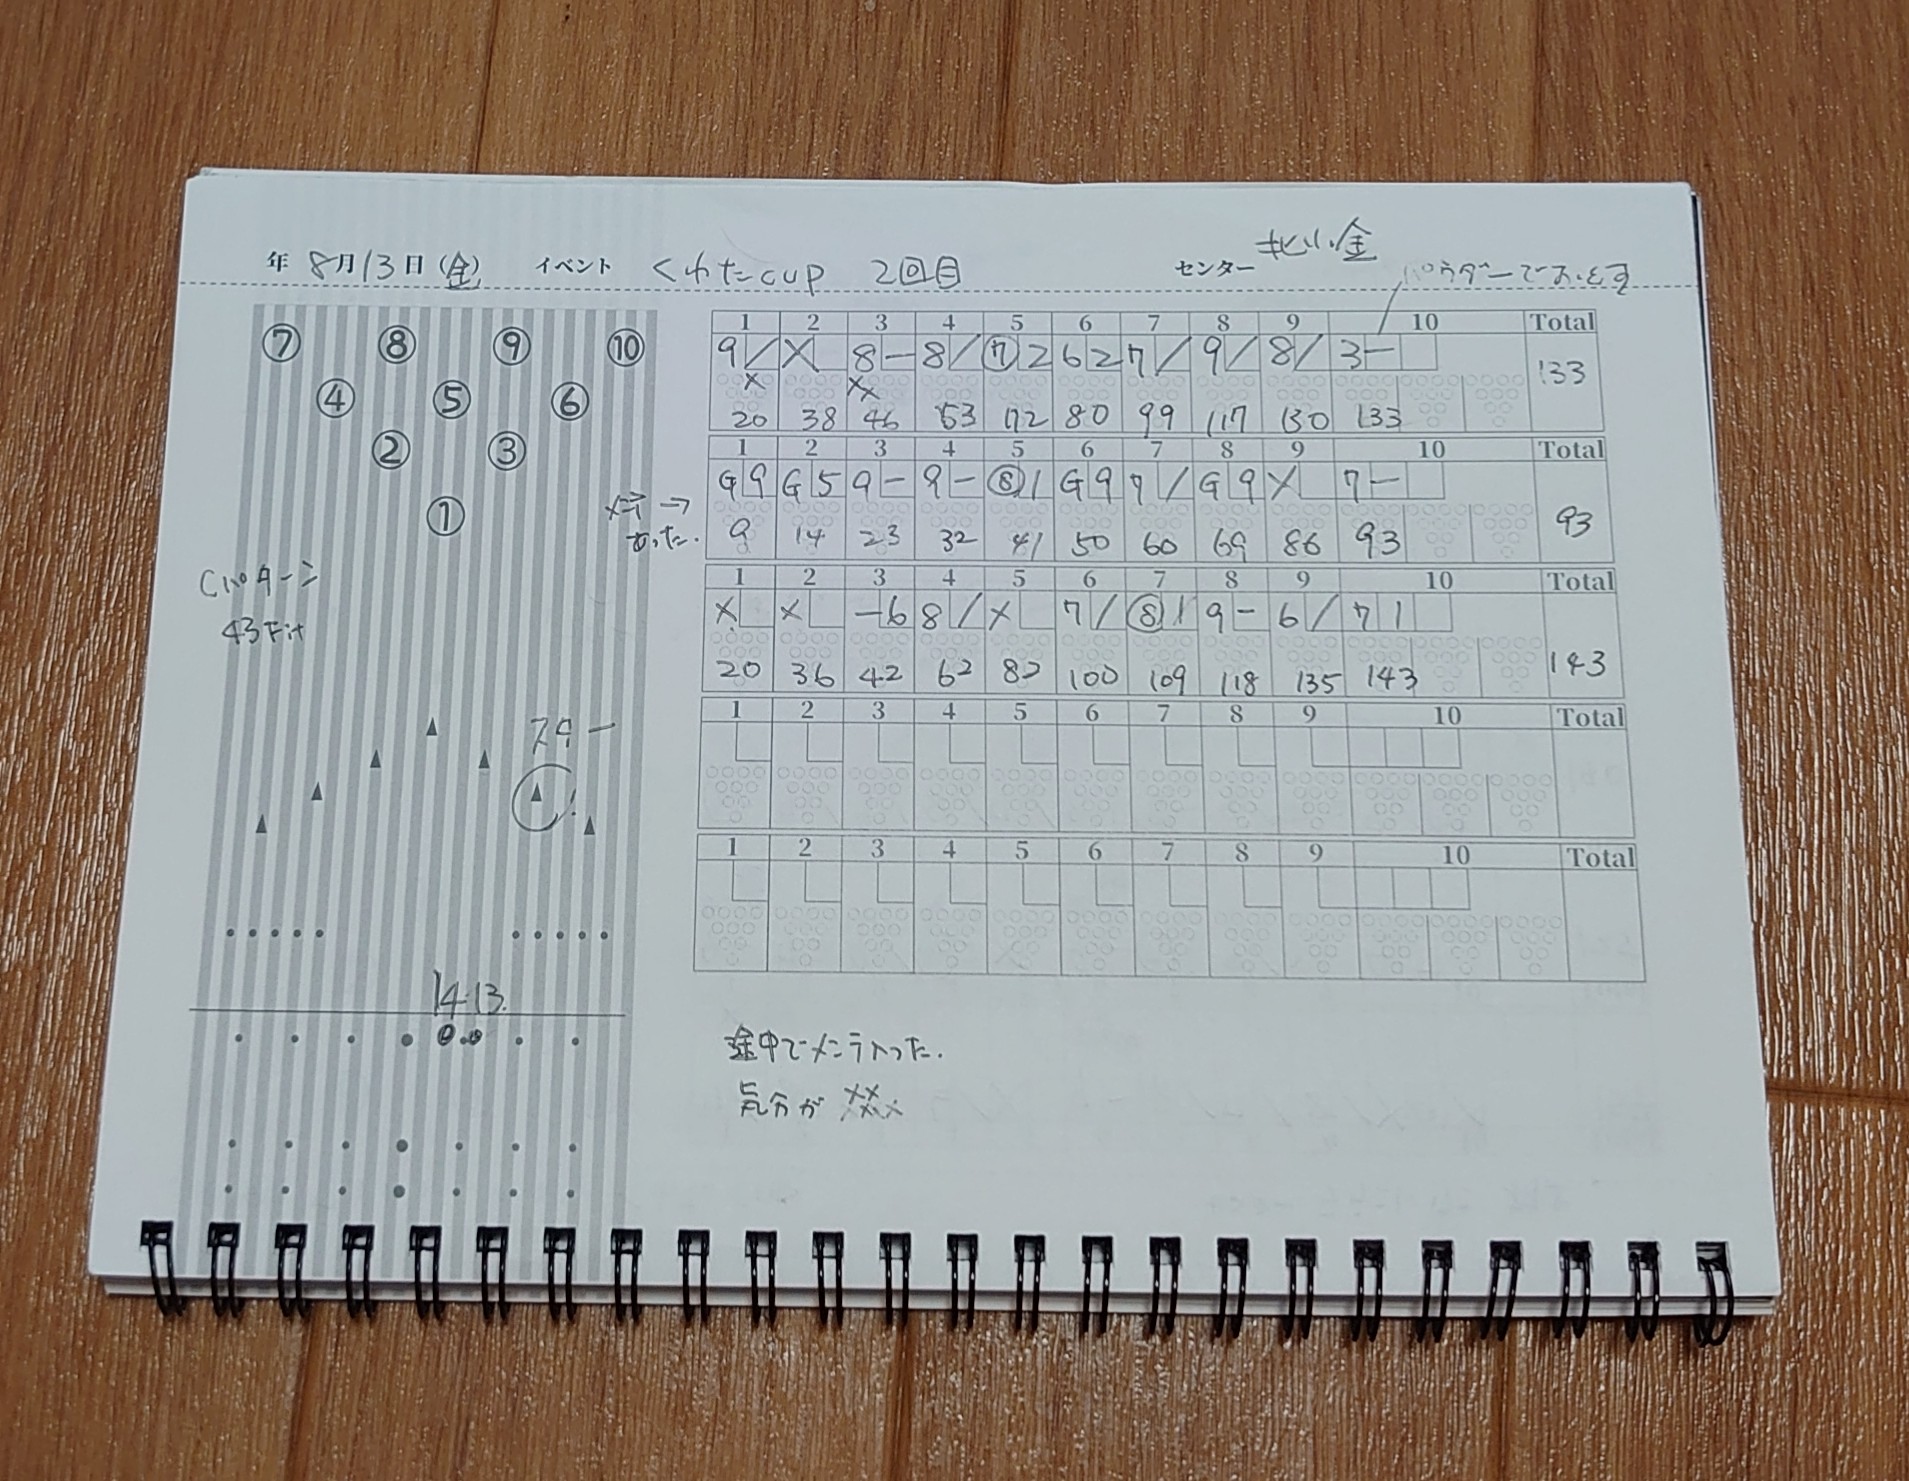 年 8月13日(金) イベント くわたcup 2回目 センター 北小金
パウダーでおとす
⑦ ⑧ ⑨ ⑩
④ ⑤ ⑥
② ③
①
Cパターン
43Fit
スター
14.13.
1 2 3 4 5 6 7 8 9 10 Total
9/ X 8- 8/ ⑦2 62 7/ 9/ 8/ 3-
133
20 38 46 63 72 80 99 117 130 133
1 2 3 4 5 6 7 8 9 10 Total
G9 G5 9- 9- ⑧1 G9 7/ G9 X 7-
メンテ→
あった.
93
9 14 23 32 41 50 60 69 86 93
1 2 3 4 5 6 7 8 9 10 Total
X X -6 8/ X 7/ ⑧1 9- 6/ 71
143
20 36 42 62 82 100 109 118 135 143
1 2 3 4 5 6 7 8 9 10 Total
1 2 3 4 5 6 7 8 9 10 Total
途中でメンテ入った.
気分が